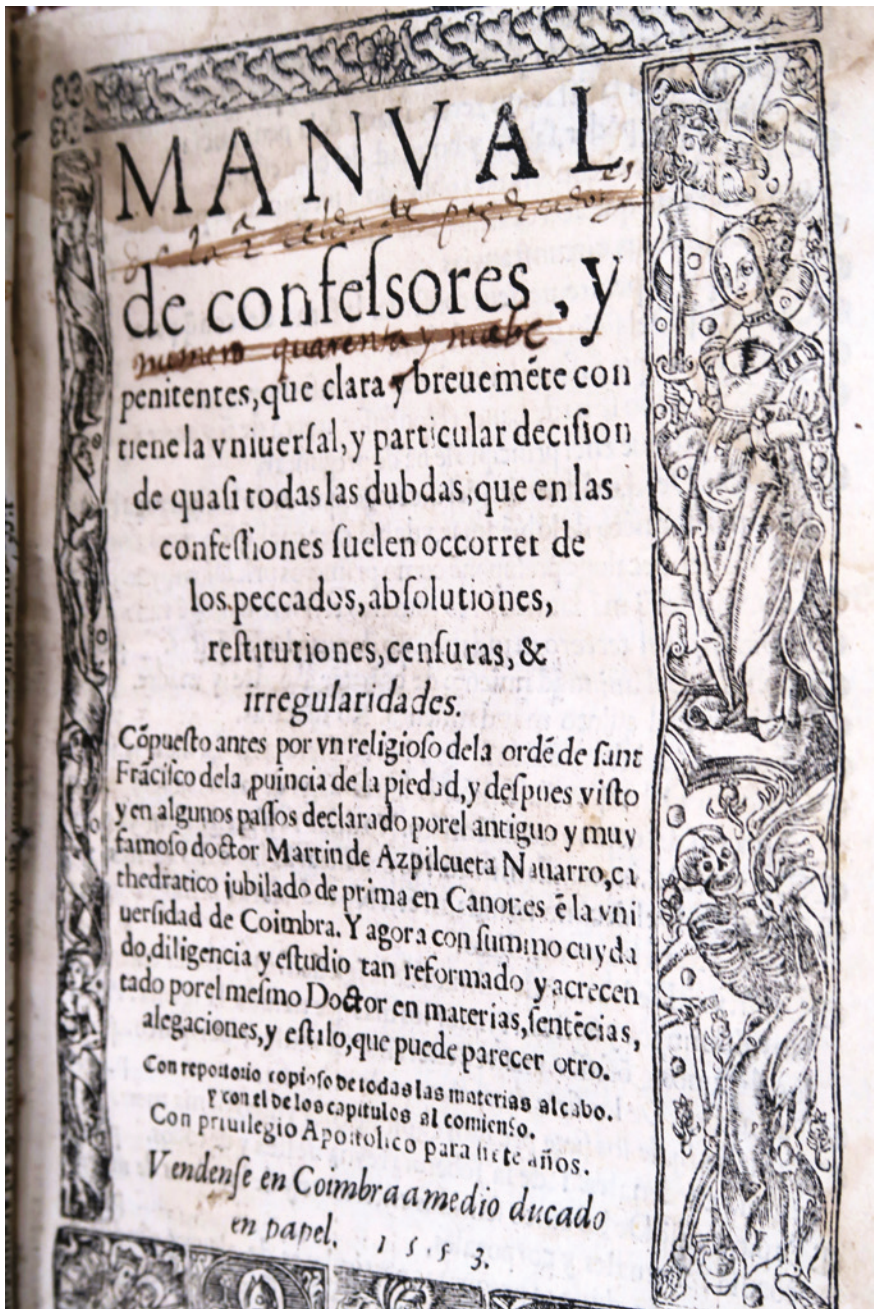 MANVAL
de la de predicadores
de confeſsores, y
numero quarenta y nuebe
penitentes, que clara y breuemẽte con
tiene la vniuerſal, y particular deciſion
de quaſi todas las dubdas, que en las
confeſſiones ſuelen occorrer de
los peccados, abſolutiones,
reſtitutiones, cenſuras, &
irregularidades.
Cõpueſto antes por vn religioſo dela ordẽ de ſant
Frãciſco dela ꝓuincia de la piedad, y deſpues viſto
y en algunos paſſos declarado porel antiguo y muy
famoſo doctor Martin de Azpilcueta Nauarro, ca
thedratico jubilado de prima en Canones ẽ la vni
uerſidad de Coimbra. Y agora con ſummo cuyda
do, diligencia y eſtudio tan reformado y acrecen
tado porel meſmo Doctor en materias, ſentẽcias,
alegaciones, y eſtilo, que puede parecer otro.
Con repottorio copioſo de todas las materias al cabo.
Y con el de los capitulos al comienço.
Con priuilegio Apoſtolico para ſiete años.
Vendenſe en Coimbra a medio ducado
en papel. 1553.